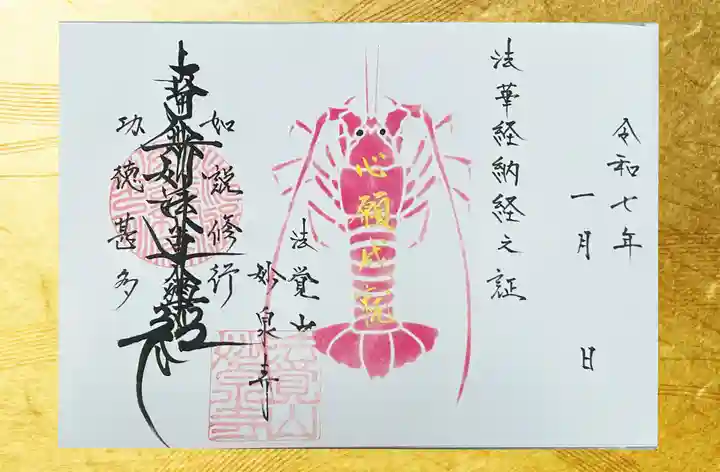 令和七年
一月 日
法華経納経之証
心願成就
法覚山
妙泉寺
如説修行
南無妙法蓮華経
功徳甚多